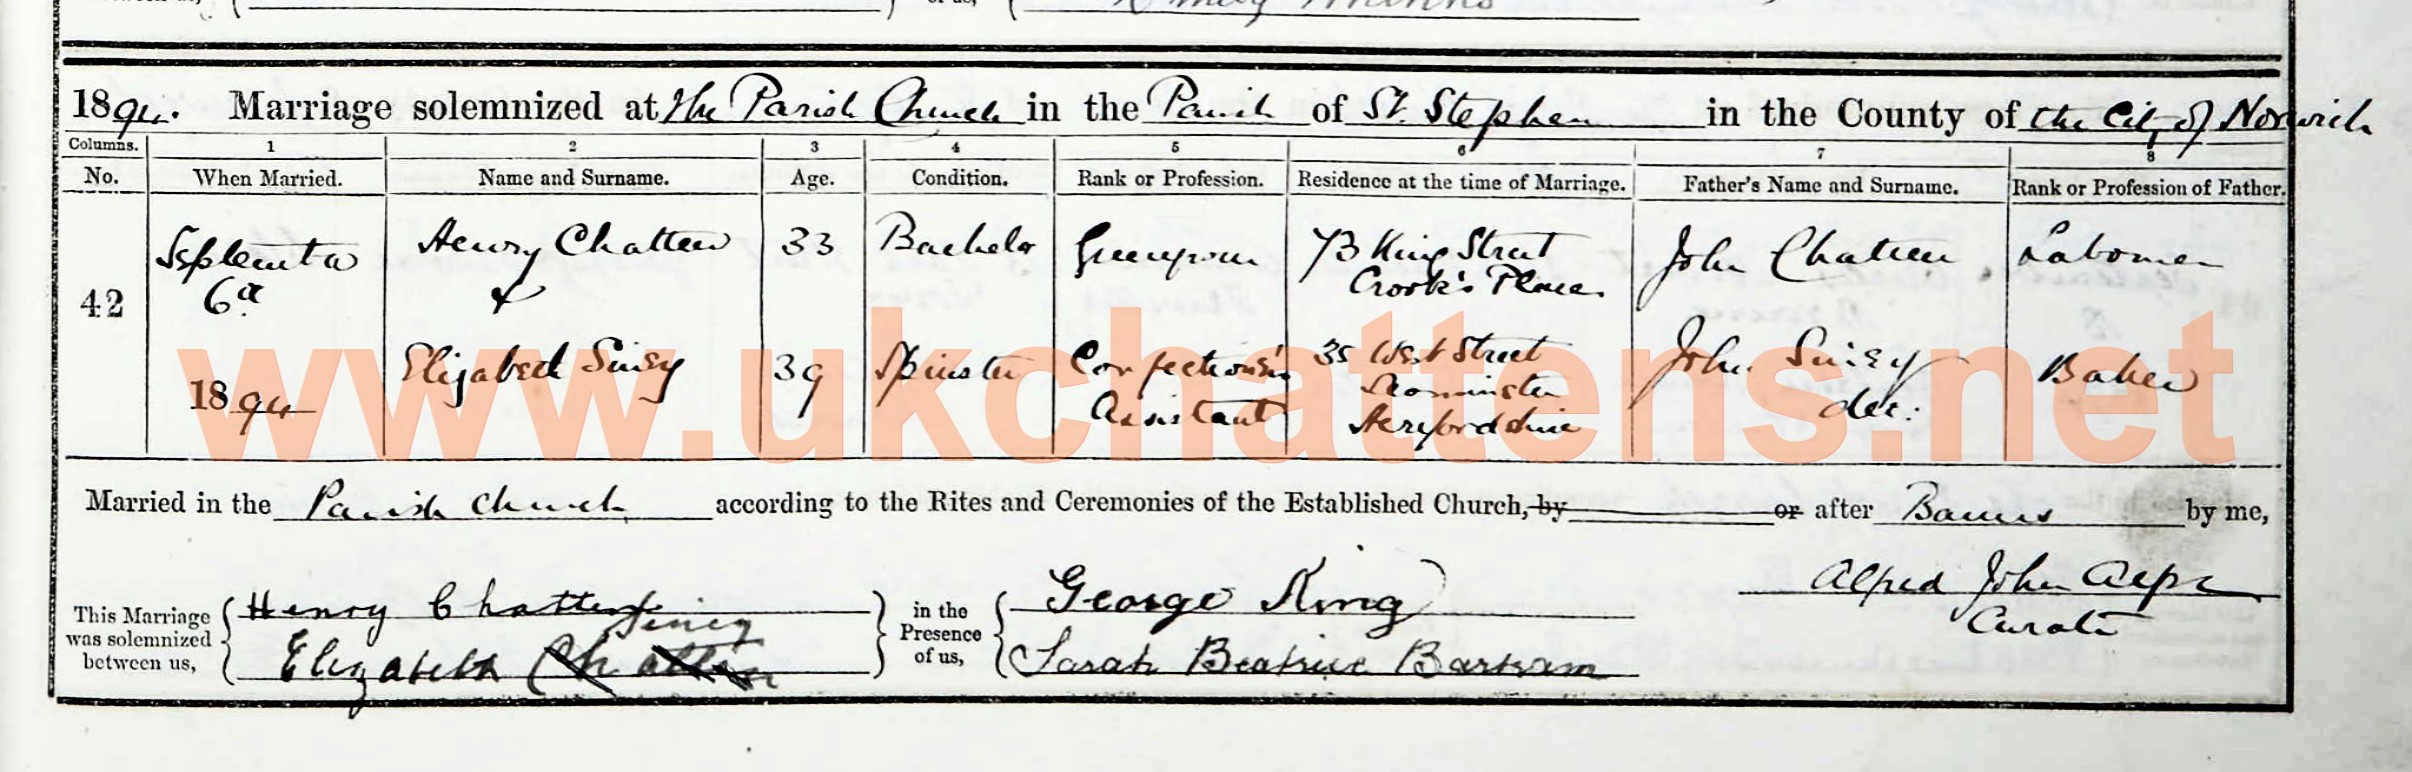 1894. Marriage solemnized at the Parish Church in the Parish of St. Stephen in the County of the City of Norwich
Columns. 1 2 3 4 5 6 7 8
No. When Married. Name and Surname. Age. Condition. Rank or Profession. Residence at the time of Marriage. Father's Name and Surname. Rank or Profession of Father.
42 September 6th 1894
Henry Chatten 33 Bachelor 73 King Street Crook's Place. John Chatten Labourer
&
Elizabeth 39 Spinster Confectioner's Assistant 35 West Street Leominster Herefordshire John dec: Baker
www.ukchattens.net
Married in the Parish Church according to the Rites and Ceremonies of the Established Church, by or after Banns by me,
Alfred John
Curate
This Marriage was solemnized between us,
Henry Chatten
Elizabeth Chatten
in the Presence of us,
George King
Sarah Beatrice Bartram